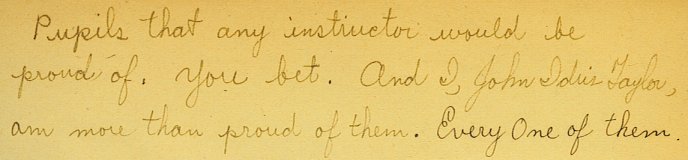 Pupils that any instructor would be
proud of. You bet. And I, John Idris Taylor,
am more than proud of them. Every One of them.